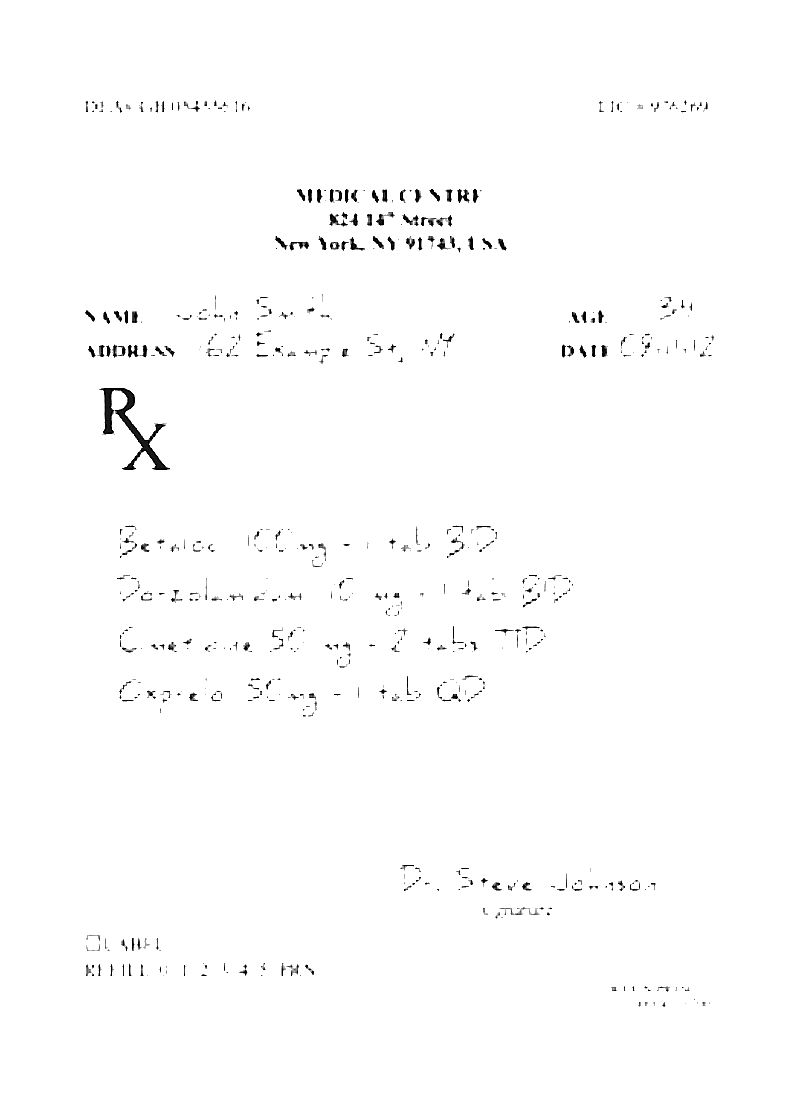 DEA# GB05455616 LIC # 976269
MEDICAL CENTRE
824 14th Street
New York, NY 91743, USA
NAME John Smith AGE 34
ADDRESS 162 Example St, NY DATE
Rx
Betaloc 100mg - 1 tab BID
Dorzolamidum 10 mg - 1 tab BID
Cimetidine 50 mg - 2 tabs TID
Oxprelol 50mg - 1 tab QD
Dr. Steve Johnson
signature
LABEL
REFILL 0 1 2 3 4 5 PRN